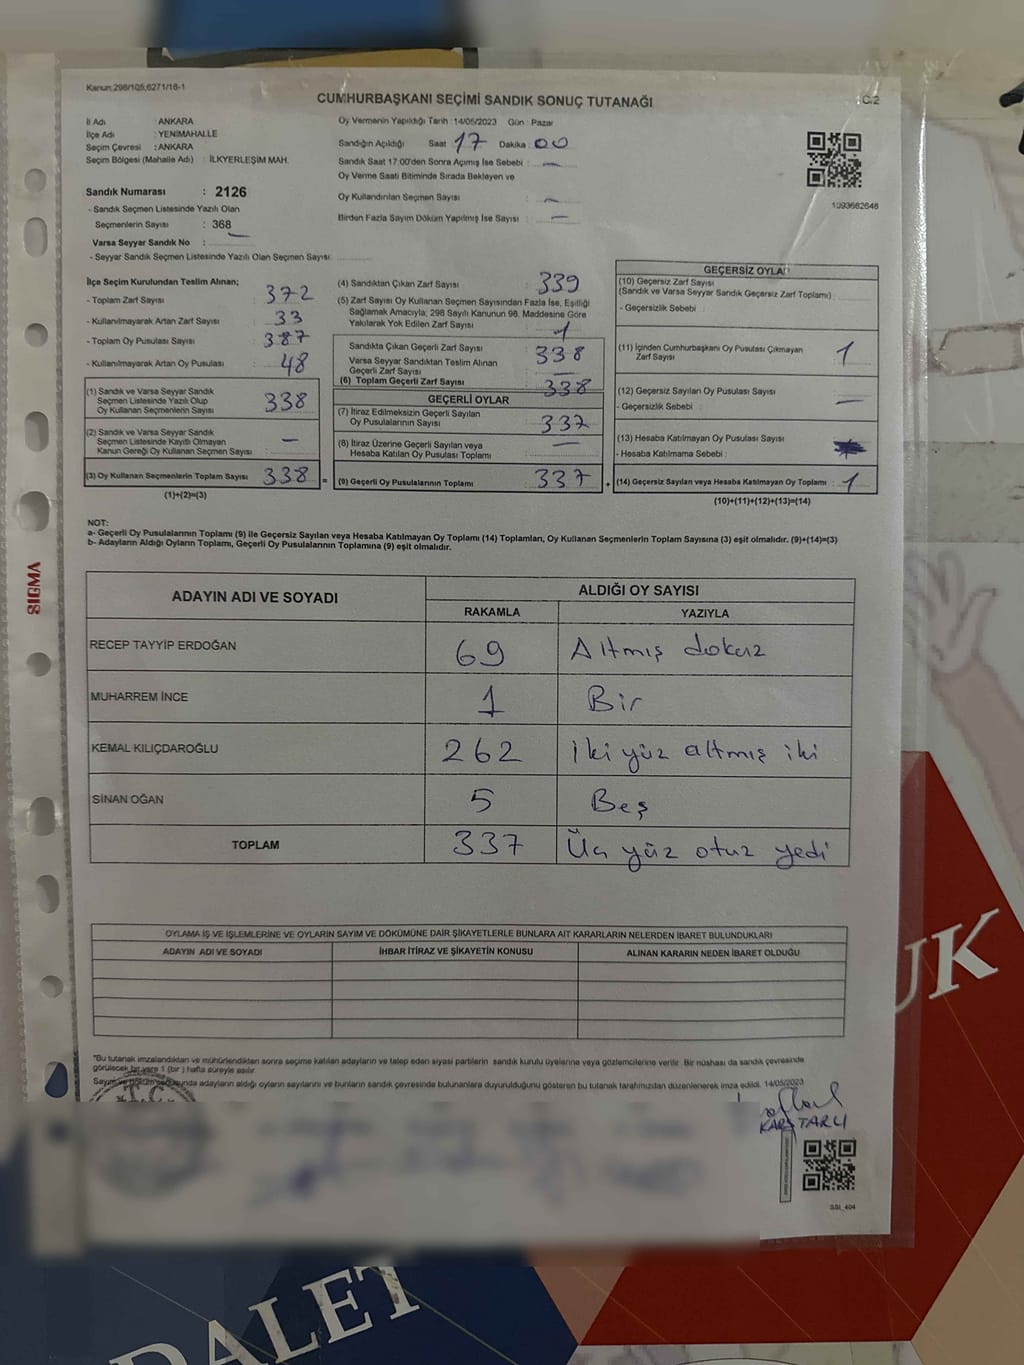 Kanun:298/105,6271/18-1
CUMHURBAŞKANI SEÇİMİ SANDIK SONUÇ TUTANAĞI
C:2
İl Adı : ANKARA
İlçe Adı : YENİMAHALLE
Seçim Çevresi : ANKARA
Seçim Bölgesi (Mahalle Adı) : İLKYERLEŞİM MAH.
Sandık Numarası : 2126
- Sandık Seçmen Listesinde Yazılı Olan
Seçmenlerin Sayısı : 368
Varsa Seyyar Sandık No : —
- Seyyar Sandık Seçmen Listesinde Yazılı Olan Seçmen Sayısı:
Oy Vermenin Yapıldığı Tarih :14/05/2023 Gün : Pazar
Sandığın Açıldığı Saat : 17 Dakika : 00
Sandık Saat 17:00'den Sonra Açımış İse Sebebi : —
Oy Verme Saati Bitiminde Sırada Bekleyen ve
Oy Kullandırılan Seçmen Sayısı : —
Birden Fazla Sayım Döküm Yapılmış İse Sayısı : —
1093662646
İlçe Seçim Kurulundan Teslim Alınan;
- Toplam Zarf Sayısı : 372
- Kullanılmayarak Artan Zarf Sayısı : 33
- Toplam Oy Pusulası Sayısı : 387
- Kullanılmayarak Artan Oy Pusulası : 48
(1) Sandık ve Varsa Seyyar Sandık
Seçmen Listesinde Yazılı Olup
Oy Kullanan Seçmenlerin Sayısı : 338
(2) Sandık ve Varsa Seyyar Sandık
Seçmen Listesinde Kayıtlı Olmayan
Kanun Gereği Oy Kullanan Seçmen Sayısı : —
(3) Oy Kullanan Seçmenlerin Toplam Sayısı : 338
(1)+(2)=(3)
=
(4) Sandıktan Çıkan Zarf Sayısı : 339
(5) Zarf Sayısı Oy Kullanan Seçmen Sayısından Fazla İse, Eşitliği
Sağlamak Amacıyla; 298 Sayılı Kanunun 98. Maddesine Göre
Yakılarak Yok Edilen Zarf Sayısı : 1
Sandıkta Çıkan Geçerli Zarf Sayısı : 338
Varsa Seyyar Sandıktan Teslim Alınan
Geçerli Zarf Sayısı : —
(6) Toplam Geçerli Zarf Sayısı : 338
GEÇERLİ OYLAR
(7) İtiraz Edilmeksizin Geçerli Sayılan
Oy Pusulalarının Sayısı : 337
(8) İtiraz Üzerine Geçerli Sayılan veya
Hesaba Katılan Oy Pusulası Toplamı : —
(9) Geçerli Oy Pusulalarının Toplamı : 337
+
GEÇERSİZ OYLA
(10) Geçersiz Zarf Sayısı
(Sandık ve Varsa Seyyar Sandık Geçersiz Zarf Toplamı) :
- Geçersizlik Sebebi :
(11) İçinden Cumhurbaşkanı Oy Pusulası Çıkmayan
Zarf Sayısı : 1
(12) Geçersiz Sayılan Oy Pusulası Sayısı : —
- Geçersizlik Sebebi :
(13) Hesaba Katılmayan Oy Pusulası Sayısı :
- Hesaba Katılmama Sebebi :
(14) Geçersiz Sayılan veya Hesaba Katılmayan Oy Toplamı : 1
(10)+(11)+(12)+(13)=(14)
NOT:
a- Geçerli Oy Pusulalarının Toplamı (9) ile Geçersiz Sayılan veya Hesaba Katılmayan Oy Toplamı (14) Toplamları, Oy Kullanan Seçmenlerin Toplam Sayısına (3) eşit olmalıdır. (9)+(14)=(3)
b- Adayların Aldığı Oyların Toplamı, Geçerli Oy Pusulalarının Toplamına (9) eşit olmalıdır.
SIGMA
ADAYIN ADI VE SOYADI ALDIĞI OY SAYISI
RAKAMLA YAZIYLA
RECEP TAYYİP ERDOĞAN 69 Altmış dokuz
MUHARREM İNCE 1 Bir
KEMAL KILIÇDAROĞLU 262 İki yüz altmış iki
SİNAN OĞAN 5 Beş
TOPLAM 337 Üç yüz otuz yedi
OYLAMA İŞ VE İŞLEMLERİNE VE OYLARIN SAYIM VE DÖKÜMÜNE DAİR ŞİKAYETLERLE BUNLARA AİT KARARLARIN NELERDEN İBARET BULUNDUKLARI
ADAYIN ADI VE SOYADI İHBAR İTİRAZ VE ŞİKAYETİN KONUSU ALINAN KARARIN NEDEN İBARET OLDUĞU
"Bu tutanak imzalandıktan ve mühürlendikten sonra seçime katılan adayların ve talep eden siyasi partilerin sandık kurulu üyelerine veya gözlemcilerine verilir. Bir nüshası da sandık çevresinde
görülecek bir yere 1 (bir) hafta süreyle asılır.
Sayım ve döküm sonunda adayların aldığı oyların sayılarını ve bunların sandık çevresinde bulunanlara duyurulduğunu gösteren bu tutanak tarafımızdan düzenlenerek imza edildi. 14/05/2023
T.C.
SSI_404
UK
DALET